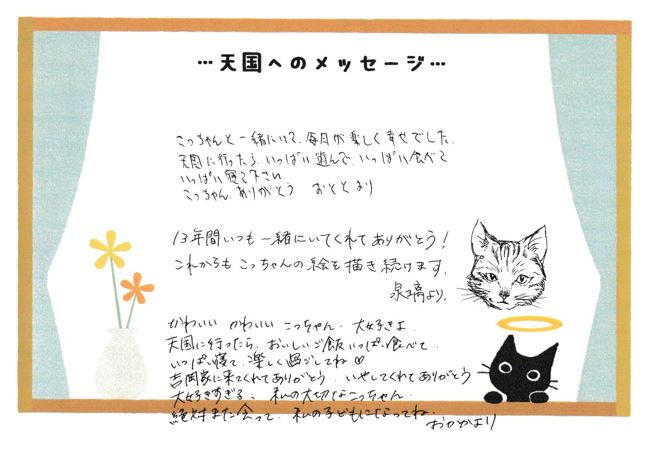 …天国へのメッセージ…
こっちゃんと一緒にいて、毎日が楽しく幸せでした。
天国に行ったら、いっぱい遊んで、いっぱい食べて
いっぱい寝て下さい。
こっちゃん、ありがとう おととより
13年間いつも一緒にいてくれてありがとう!
これからもこっちゃんの絵を描き続けます。
より。
かわいい かわいい こっちゃん、大好きよ
天国に行ったら、おいしいご飯いっぱい食べて、
いっぱい寝て、楽しく過ごしてね♡
吉岡家に来てくれてありがとう、いやしてくれてありがとう
大好きすぎる、私の大切なこっちゃん、
絶対また会って、私の子どもになってね、
おかかより